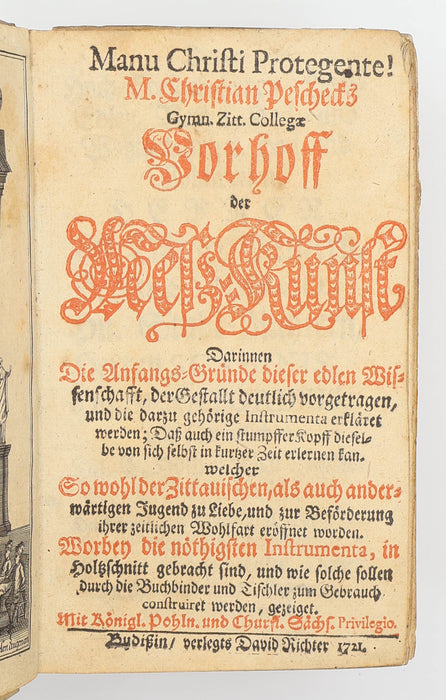 Manu Christi Protegente!
M. Christian Peschecks
Gymn. Zitt. Collegæ
Vorhoff
der
Meß-Kunst
Darinnen
Die Anfangs-Gründe dieser edlen Wis-
senschafft, der Gestallt deutlich vorgetragen,
und die darzu gehörige Instrumenta erkläret
werden; Daß auch ein stumpffer Kopff diesel-
be von sich selbst in kurtzer Zeit erlernen kan.
welcher
So wohl der Zittauischen, als auch ander-
wärtigen Jugend zu Liebe, und zur Beförderung
ihrer zeitlichen Wohlfart eröffnet worden.
Worbey die nöthigsten Instrumenta, in
Holtzschnitt gebracht sind, und wie solche sollen
durch die Buchbinder und Tischler zum Gebrauch
construiret werden, gezeiget.
Mit Königl. Pohln. und Churfl. Sächs. Privilegio.
Budißin / verlegts David Richter 1721.